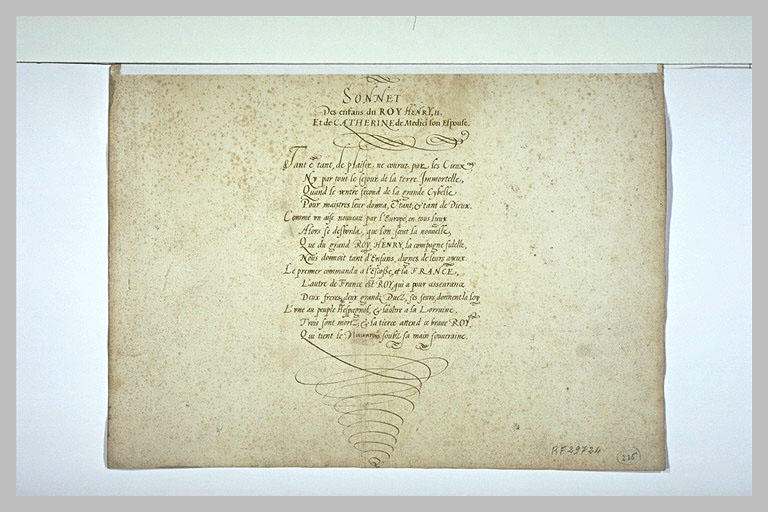 SONNET
Des enfans du ROY HENRY, II,
Et de CATHERINE de Medici son Espouse.
Tant & tant, de plaisir ne courut par les Cieux
Ny par tout le sejour de la terre Immortelle,
Quand le ventre fecond de la grande Cybelle
Pour maistres leur donna, & tant, & tant de Dieux.
Comme un aise nouveau par l'Europe, en tous lieux
Alors se desborda, que l'on sceut la nouvelle,
Que du grand ROY HENRY, la compagne fidelle,
Nous donnoit tant d'Enfans, dignes de leurs ayeux.
Le premier commanda a l'Escosse, et la FRANCE,
L'autre de France est ROY, qui a pour asseurance
Deux freres, deux grandz Ducz, ses seurs, donnent la loy
L'vne au peuple Hespagnol, & l'aultre a la Lorraine,
Trois sont mortz, & la tierce attend ce brave ROY,
Qui tient le soubz sa main souveraine.
RF 29724
(235)